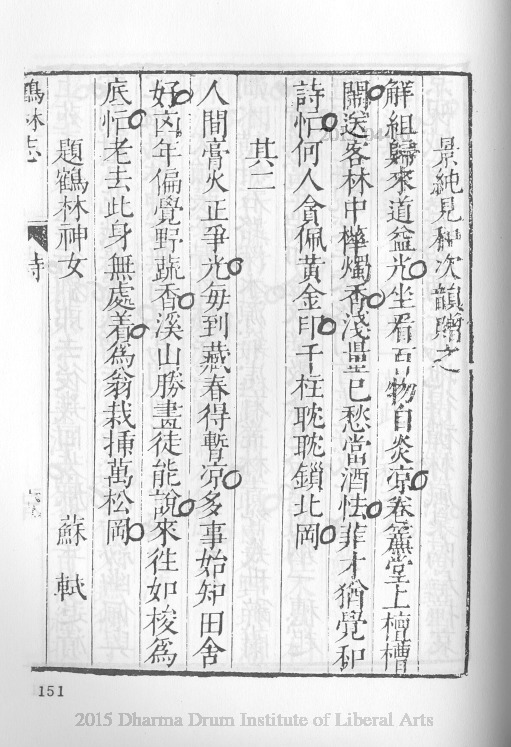 景純見和次韻贈之
觧組歸來道益光坐看百物自炎凉卷簾堂上檀槽
鬧送客林中樺燭香淺量已愁當酒怯非才猶覺和
詩忙何人貪佩黃金印千柱耽耽鎖北岡
其二
人間膏火正爭光每到藏春得暫凉多事始知田舍
好凶年偏覺野蔬香溪山勝畫徒能說來徃如梭為
底忙老去此身無處着為翁栽揷萬松岡
題鶴林神女 蘇軾
鶴林志 詩
151
2015 Dharma Drum Institute of Liberal Arts